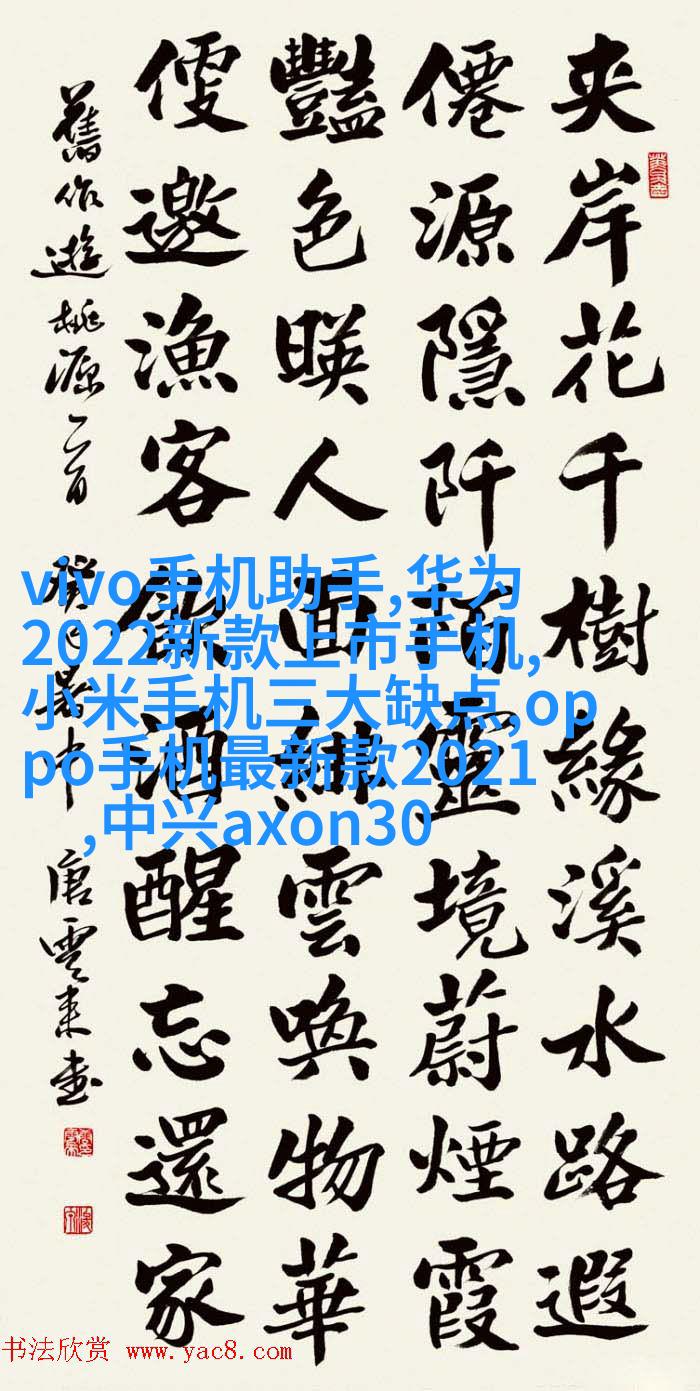 夾岸花千樹緣溪水路遐
僊源隱阡陌靈境蔚煙霞
豔色暎人面雲喚物華
便邀漁客酒醒忘還家
舊作遊桃源二首 癸暑中 唐雲來書
vivo手机助手,华为
2022新款上市手机,
小米手机三大缺点,op
po手机最新款2021
,中兴axon30
书法欣赏 www.yac8.com